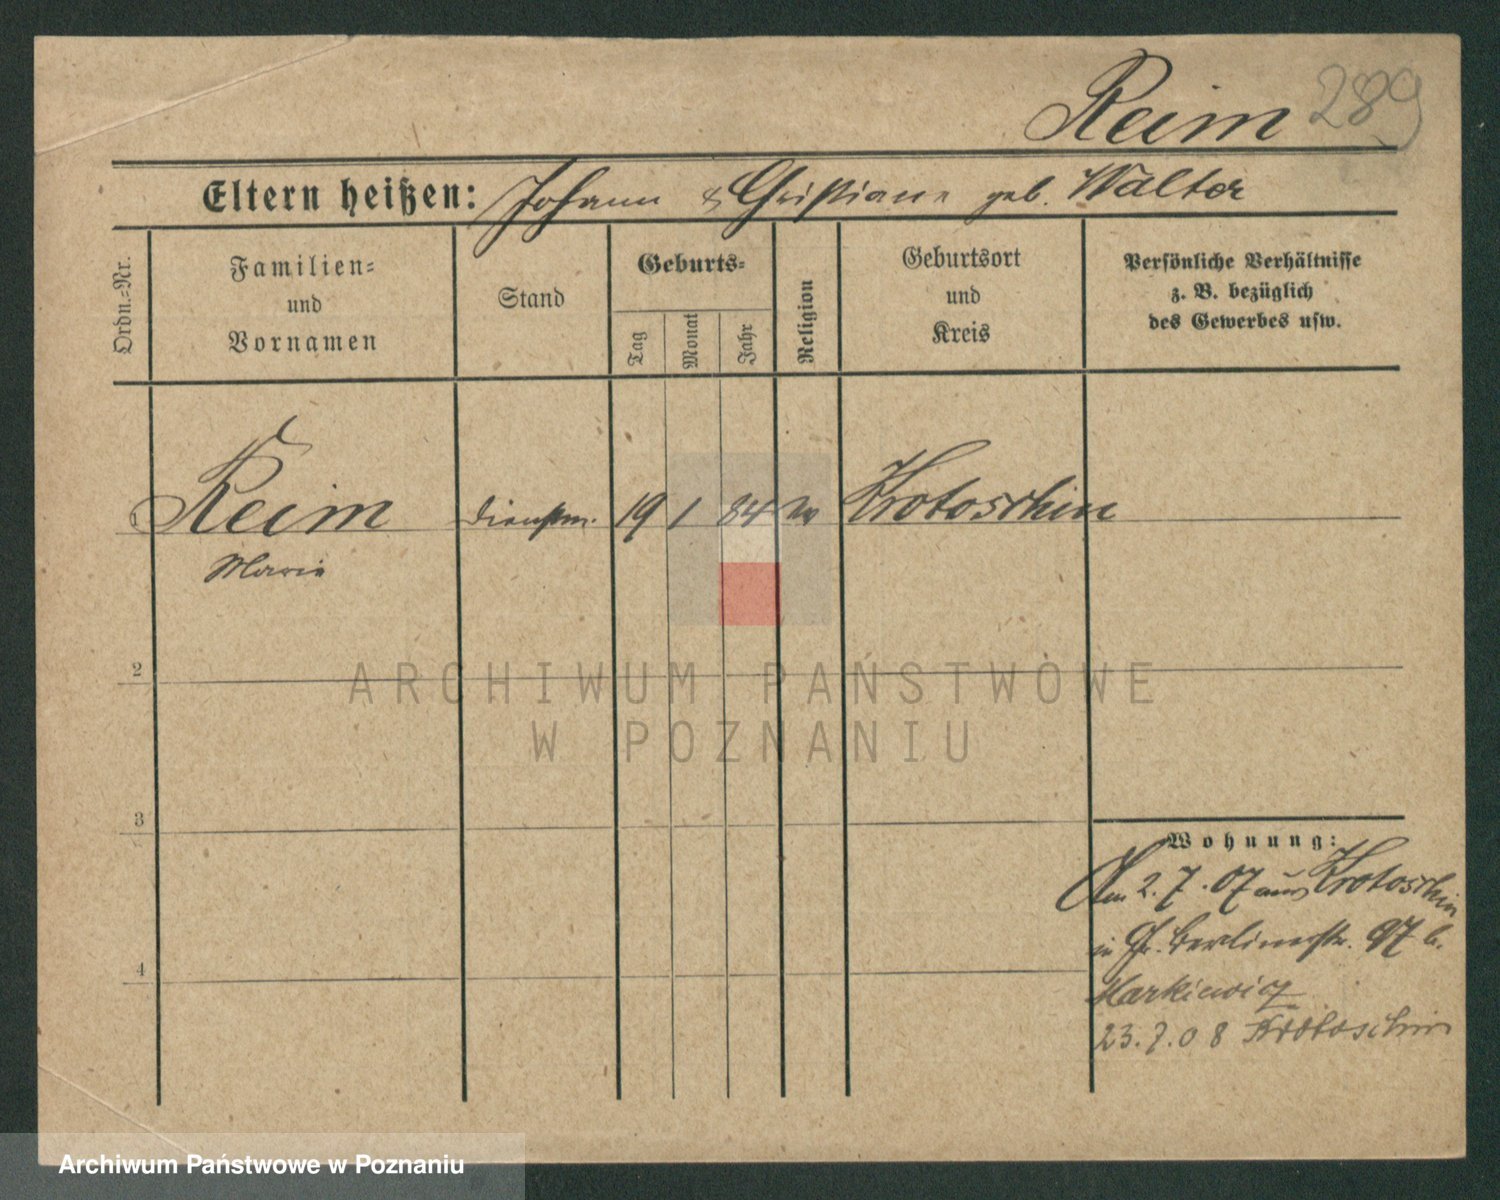 Reim 289
Eltern heißen: Johann & Christiane geb. Walter
Ordn.-Nr.
Familien-
und
Vornamen
Stand
Geburts-
Tag
Monat
Jahr
Religion
Geburtsort
und
Kreis
Persönliche Verhältnisse
z. B. bezüglich
des Gewerbes usw.
1 Reim Dienstm. 19 1 84 ev Krotoschin
Marie
2
3
4
Wohnung:
Am 2.7.07 aus Krotoschin
in Gr. Berlinerstr. 97 b.
Markiewicz
23.7.08 Krotoschin
ARCHIWUM PAŃSTWOWE
W POZNANIU
Archiwum Państwowe w Poznaniu